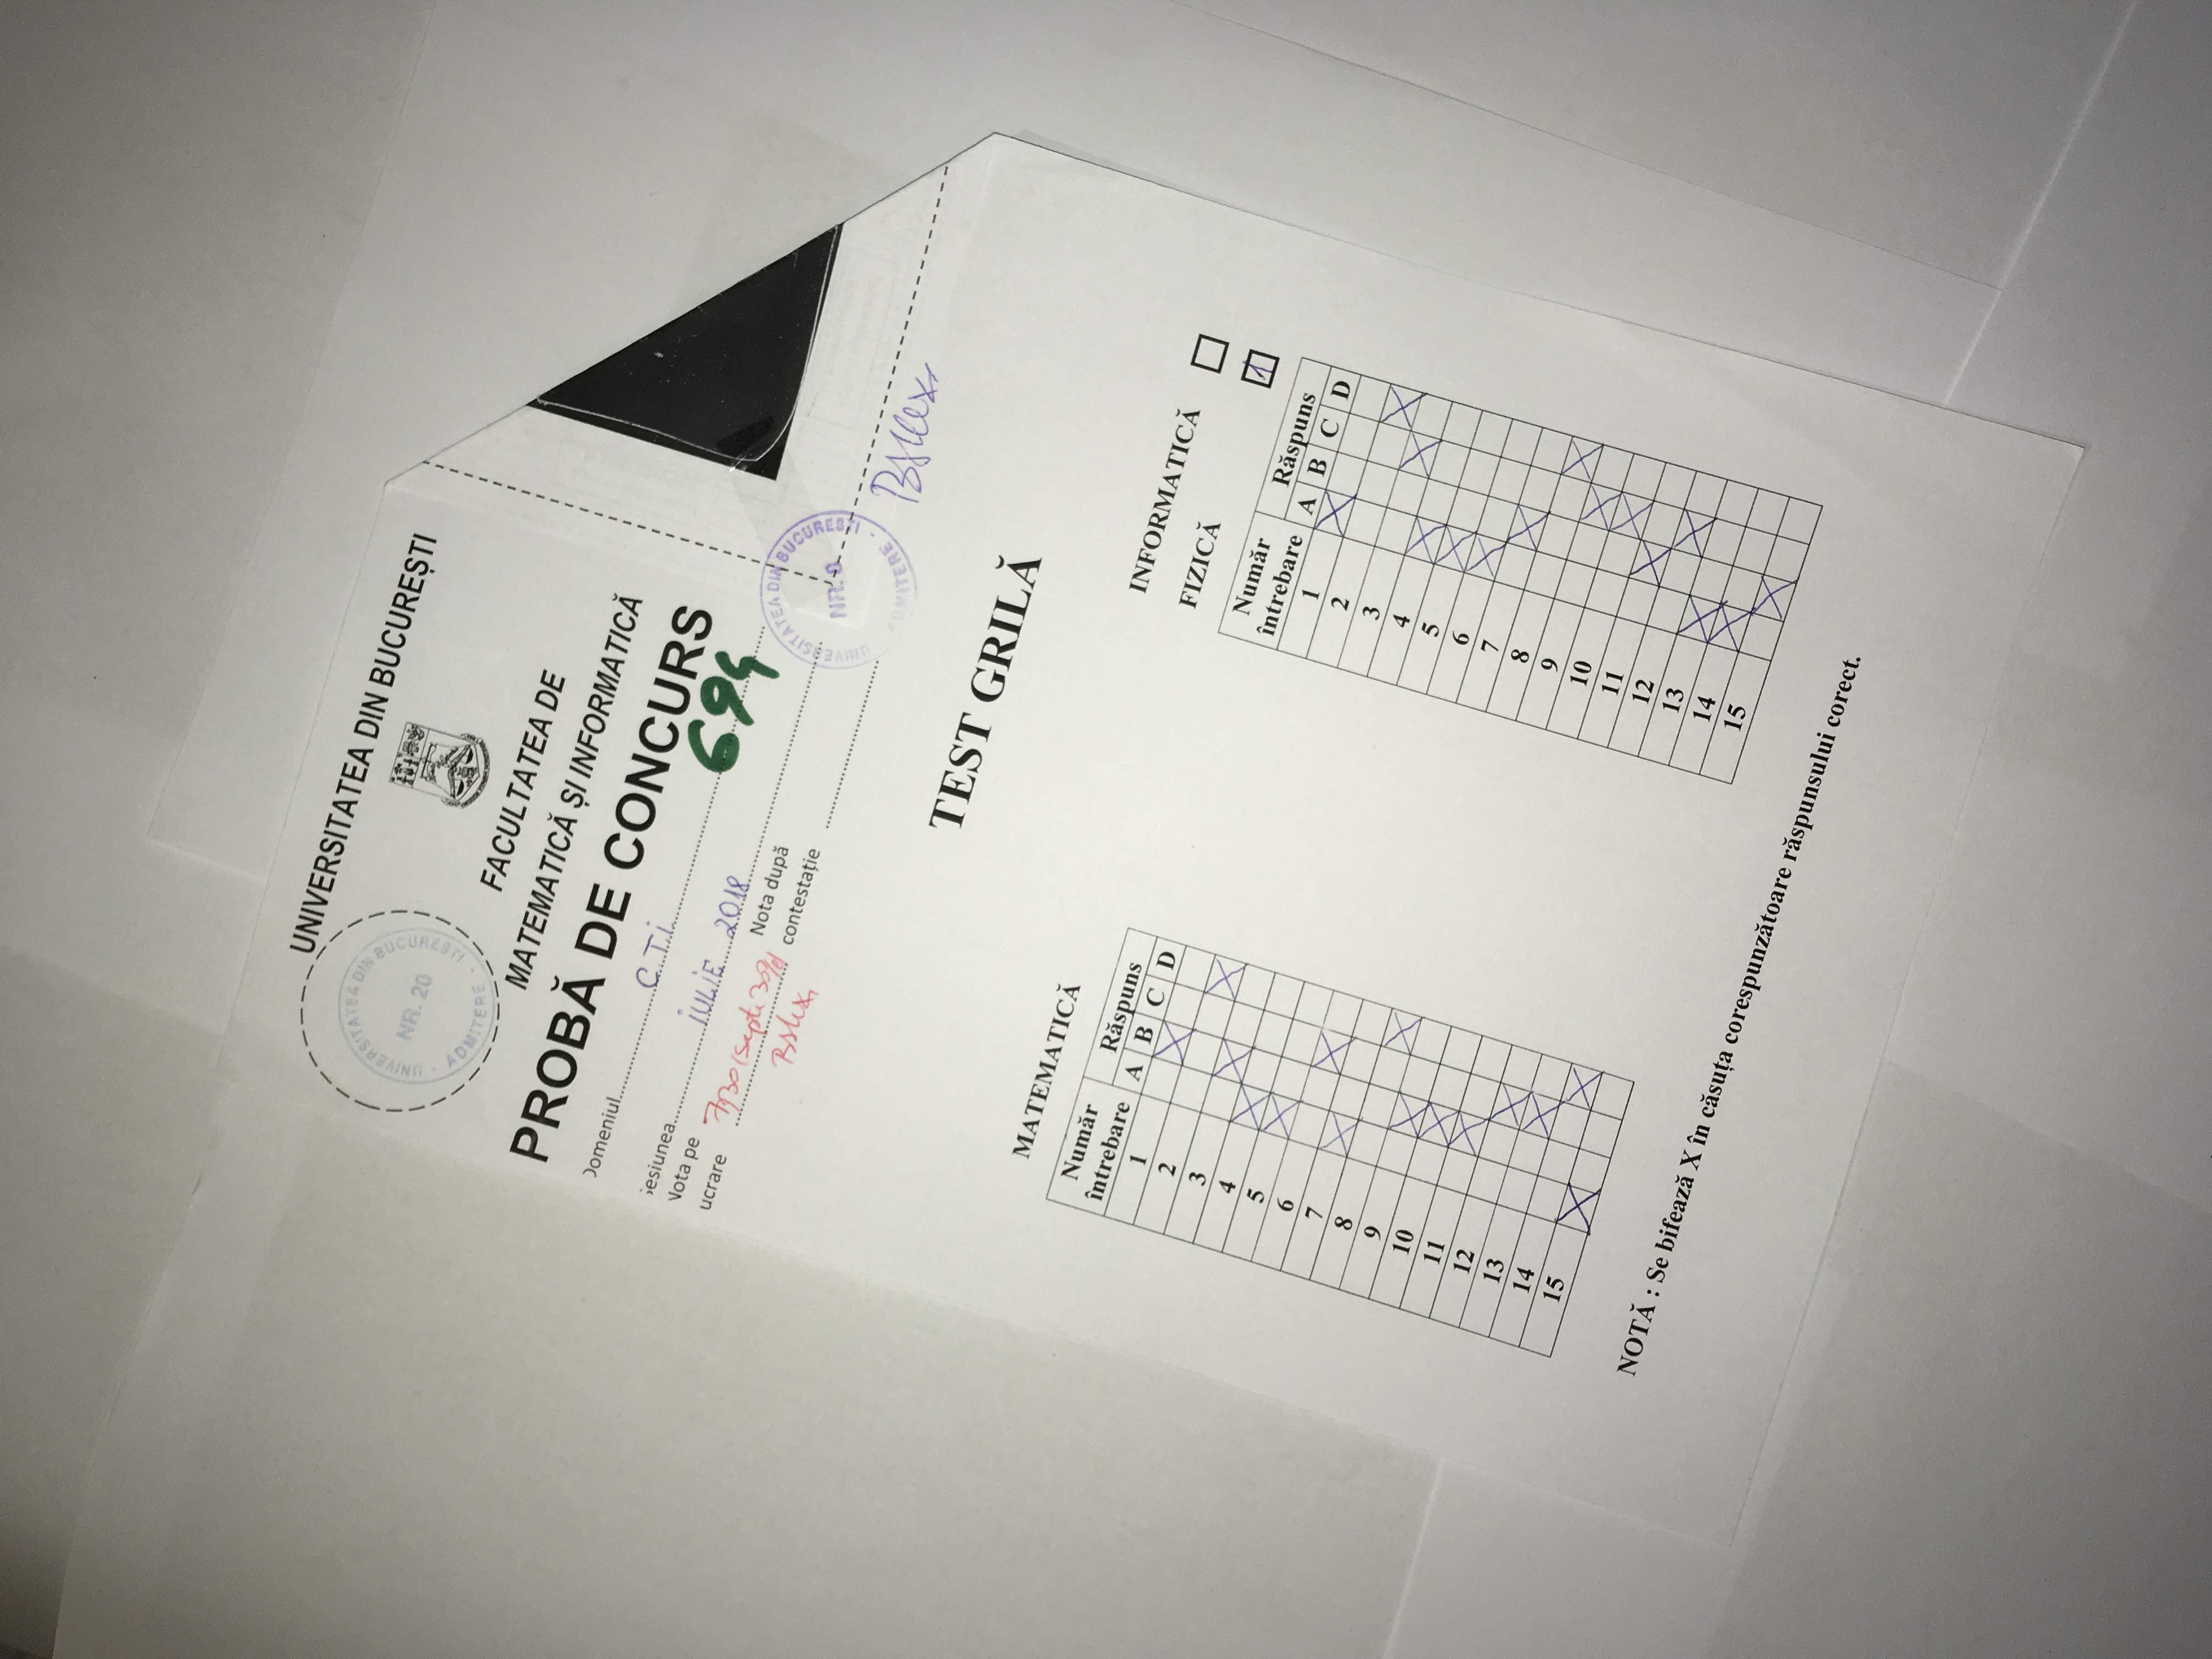 UNIVERSITATEA DIN BUCUREȘTI
UNIVERSITATEA DIN BUCUREȘTI
NR. 20
ADMITERE
FACULTATEA DE
MATEMATICĂ ȘI INFORMATICĂ
PROBĂ DE CONCURS
Domeniul C.T.i.
694
Sesiunea iULiE 2018
Nota pe
lucrare 7,30 (sapte 30%)
Nota după
contestație
UNIVERSITATEA DIN BUCUREȘTI
NR. 9
ADMITERE
TEST GRILĂ
MATEMATICĂ
Număr
întrebare
Răspuns
A B C D
1 X
2 X
3 X
4 X
5 X
6 X
7 X
8 X
9 X
10 X
11 X
12 X
13 X
14 X
15 X
INFORMATICĂ
FIZICĂ 1
Număr
întrebare
Răspuns
A B C D
1 X
2 X
3 X
4 X
5 X
6 X
7 X
8 X
9 X
10 X
11 X
12 X
13 X
14 X
15 X
NOTĂ : Se bifează X în căsuța corespunzătoare răspunsului corect.